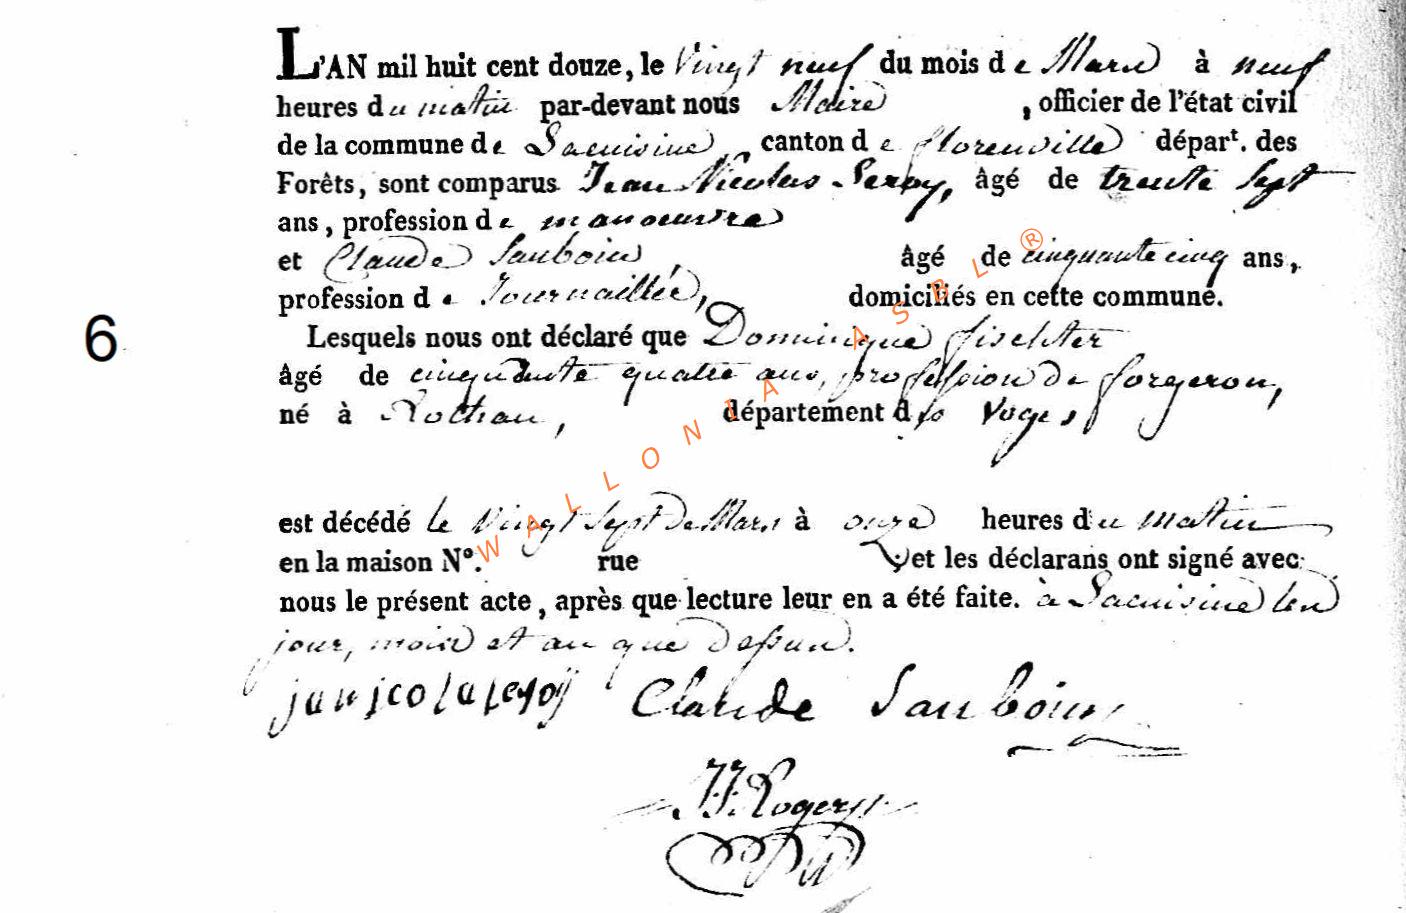 L'AN mil huit cent douze, le Vingt neuf du mois de Mars à neuf
heures du matin par-devant nous Maire , officier de l'état civil
de la commune de Lacuisine, canton de florenville dépar^t. des
Forêts, sont comparus Jean Nicolas Leroy, âgé de trente sept
ans, profession de manoeuvre
et Claude Sauboin, âgé de cinquante cinq ans,
profession de Journaillier, domiciliés en cette commune.
6
Lesquels nous ont déclaré que Dominique fischter
âgé de cinquante quatre ans, profession de forgeron,
né à Rothau, département des Voges
est décédé le Vingt sept de Mars à onze heures du matin
en la maison N°. rue et les déclarans ont signé avec
nous le présent acte, après que lecture leur en a été faite. à Lacuisine les
jour, mois et an que dessus.
Claude Sauboin
WALLONIA ASBL ®